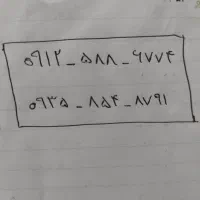 ۰۹۱۲_ ۵۸۸ _ ۶۷۷۴
۰۹۳۵ _ ۸۵۴ _ ۸۷۹۱